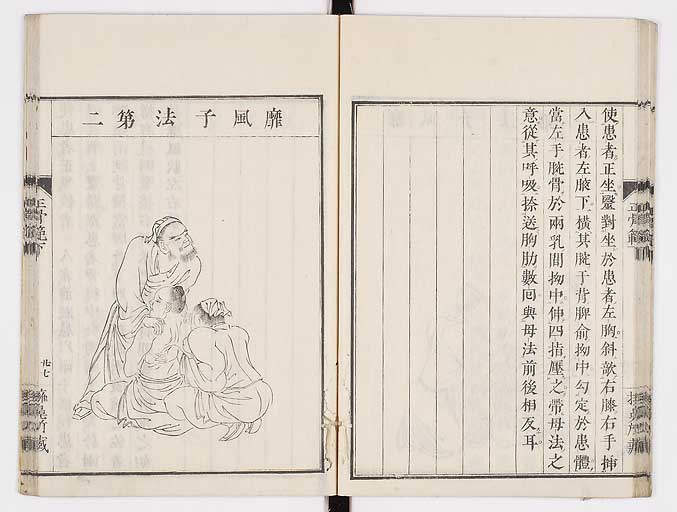 使患者正坐毉對坐於患者左胸斜歆右膝右手揷
入患者左腋下橫其腕于背脾俞拗中勾定於患體
當左手腕骨於兩乳間拗中伸四指壓之帶母法之
意從其呼吸捺送胸肋數回與母法前後相反耳
靡風子法第二
正骨範下
廿七